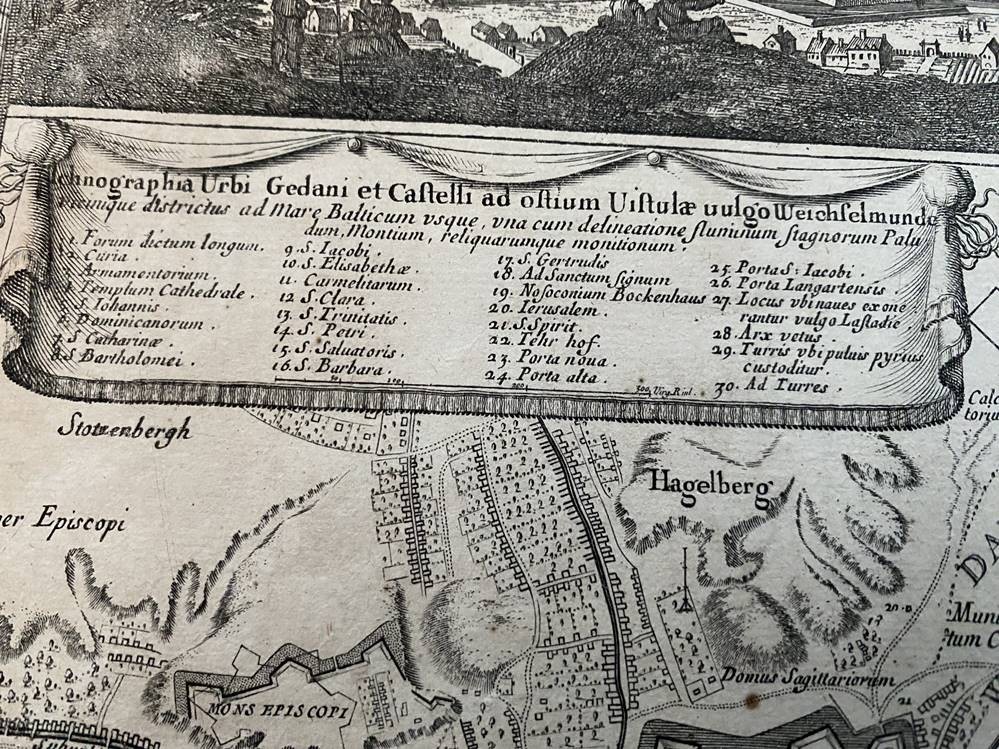 Ichnographia Urbi Gedani et Caſtelli ad oſtium Uiſtulæ uulgo Weichſelmunde
districtus ad Mare Balticum vsque, vna cum delineatione fluminum ſtagnorum Palu
dum, Montium, reliquarumque monitionum.
1. Forum dictum longum.
2. Curia.
3. Armamentorium.
4. Templum Cathedrale.
5. S. Iohannis.
6. Dominicanorum.
7. S Catharinæ.
8. S Bartholomei.
9. S. Iacobi.
10. S. Elisabethæ.
11. Carmelitarum.
12 S. Clara.
13. S. Trinitatis.
14. S. Petri.
15. S. Saluatoris.
16. S. Barbara.
17. S. Gertrudis
18. Ad Sanctum ſignum
19. Noſoconium Bockenhaus
20. Ierusalem.
21. S. Spirit.
22. Tehr hof.
23. Porta noua.
24. Porta alta.
25. Porta S: Iacobi.
26. Porta Langartensis.
27. Locus vbi naues exone
rantur vulgo Laſtadie
28. Arx vetus.
29. Turris vbi puluis pyrius
custoditur.
30. Ad Turres.
100
200
300 Virg. Rinl.
Stotzenbergh
Hagelberg
Episcopi
MONS EPISCOPI
Domus Sagittariorum
20
21
DA
Muni
tum C
Calc
toriu